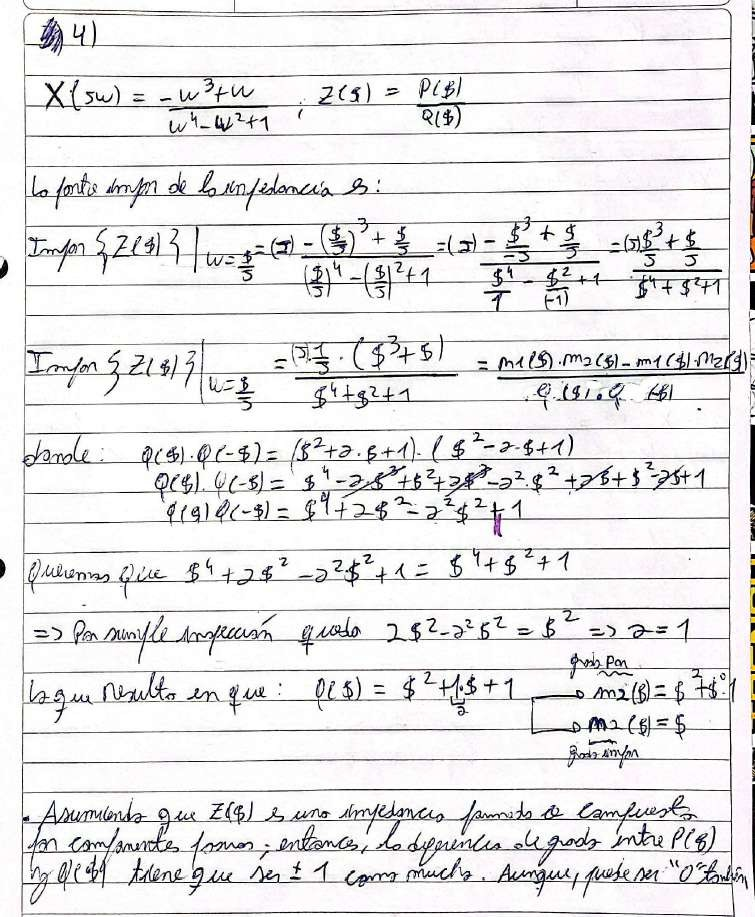 4)
X(jw) = (-w³+w)/(w⁴-w²+1) ; Z($) = P($)/Q($)
La parte impar de la impedancia es:
Impar {Z($)} |_{w=$/j} = (j) (-($/j)³ + $/j)/(($/j)⁴ - ($/j)² + 1) = (j) (-$³/-j + $/j)/($⁴/1 - $²/(-1) + 1) = (j) ($³/j + $/j)/($⁴+$²+1)
Impar {Z($)} |_{w=$/j} = (j) (1/j · ($³+$))/($⁴+$²+1) = (m1($)·m2($) - m1($)·m2($))/(Q($)·Q(-$))
donde: Q($)·Q(-$) = ($²+a·$+1)·($²-a·$+1)
Q($)·Q(-$) = $⁴-a$³+$²+a$³-a²·$²+a$+$²-a$+1
Q($)Q(-$) = $⁴+2$²-a²$²+1
Queremos que $⁴+2$²-a²$²+1 = $⁴+$²+1
=> Por simple inspección queda 2$²-a²$² = $² => a=1
grado par
lo que resulta en que: Q($) = $²+1·$+1 m2($) = $²+$⁰·1
a
m2($) = $
grado impar
. Asumiendo que Z($) es una impedancia formada o compuesta
por componentes pasivos; entonces, la diferencia de grado entre P($)
y Q($) tiene que ser ± 1 como mucho. Aunque, puede ser "0" también